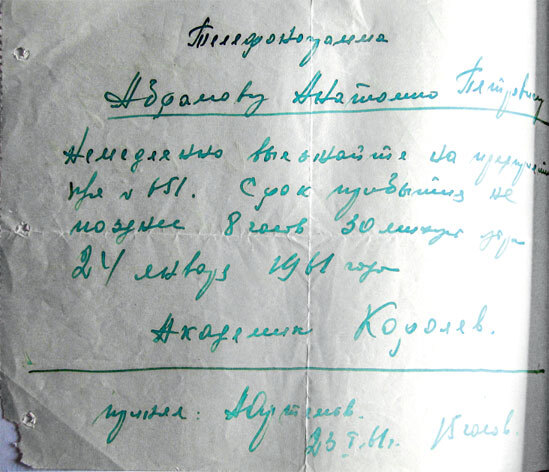 Телефонограмма
Абрамову Анатолию Петровичу
Немедленно выезжайте на
п/я № 651. Срок прибытия не
позднее 8 часов 30 минут утра
24 января 1961 года
Академик Королев.
принял:
23.I.61г. 15 часов.